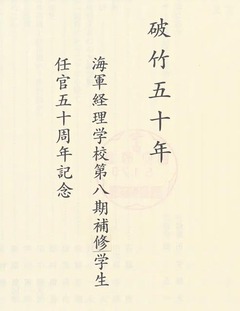 破竹五十年
海軍経理学校第八期補修学生
任官五十周年記念